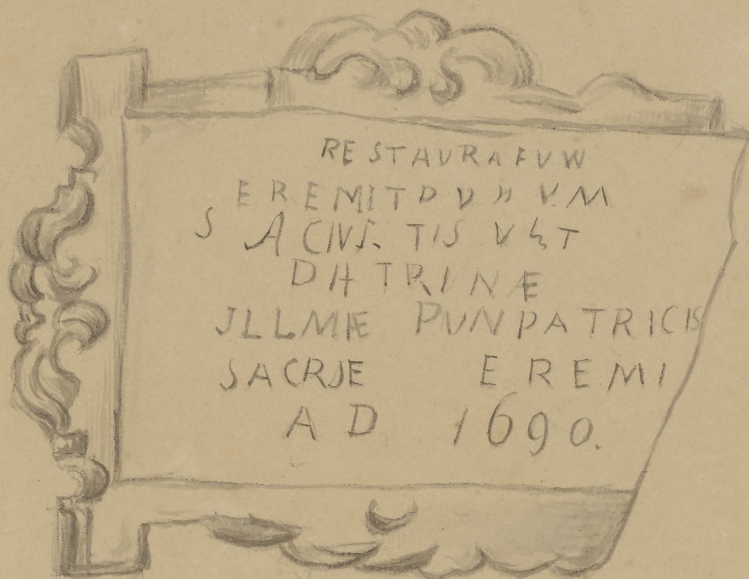 RESTAURAFUW
EREMITDVHVM
S ACIVS. TIS VET
DHTRINÆ
JLLMÆ PVNPATRICIS
SACRÆ EREMI
AD 1690.